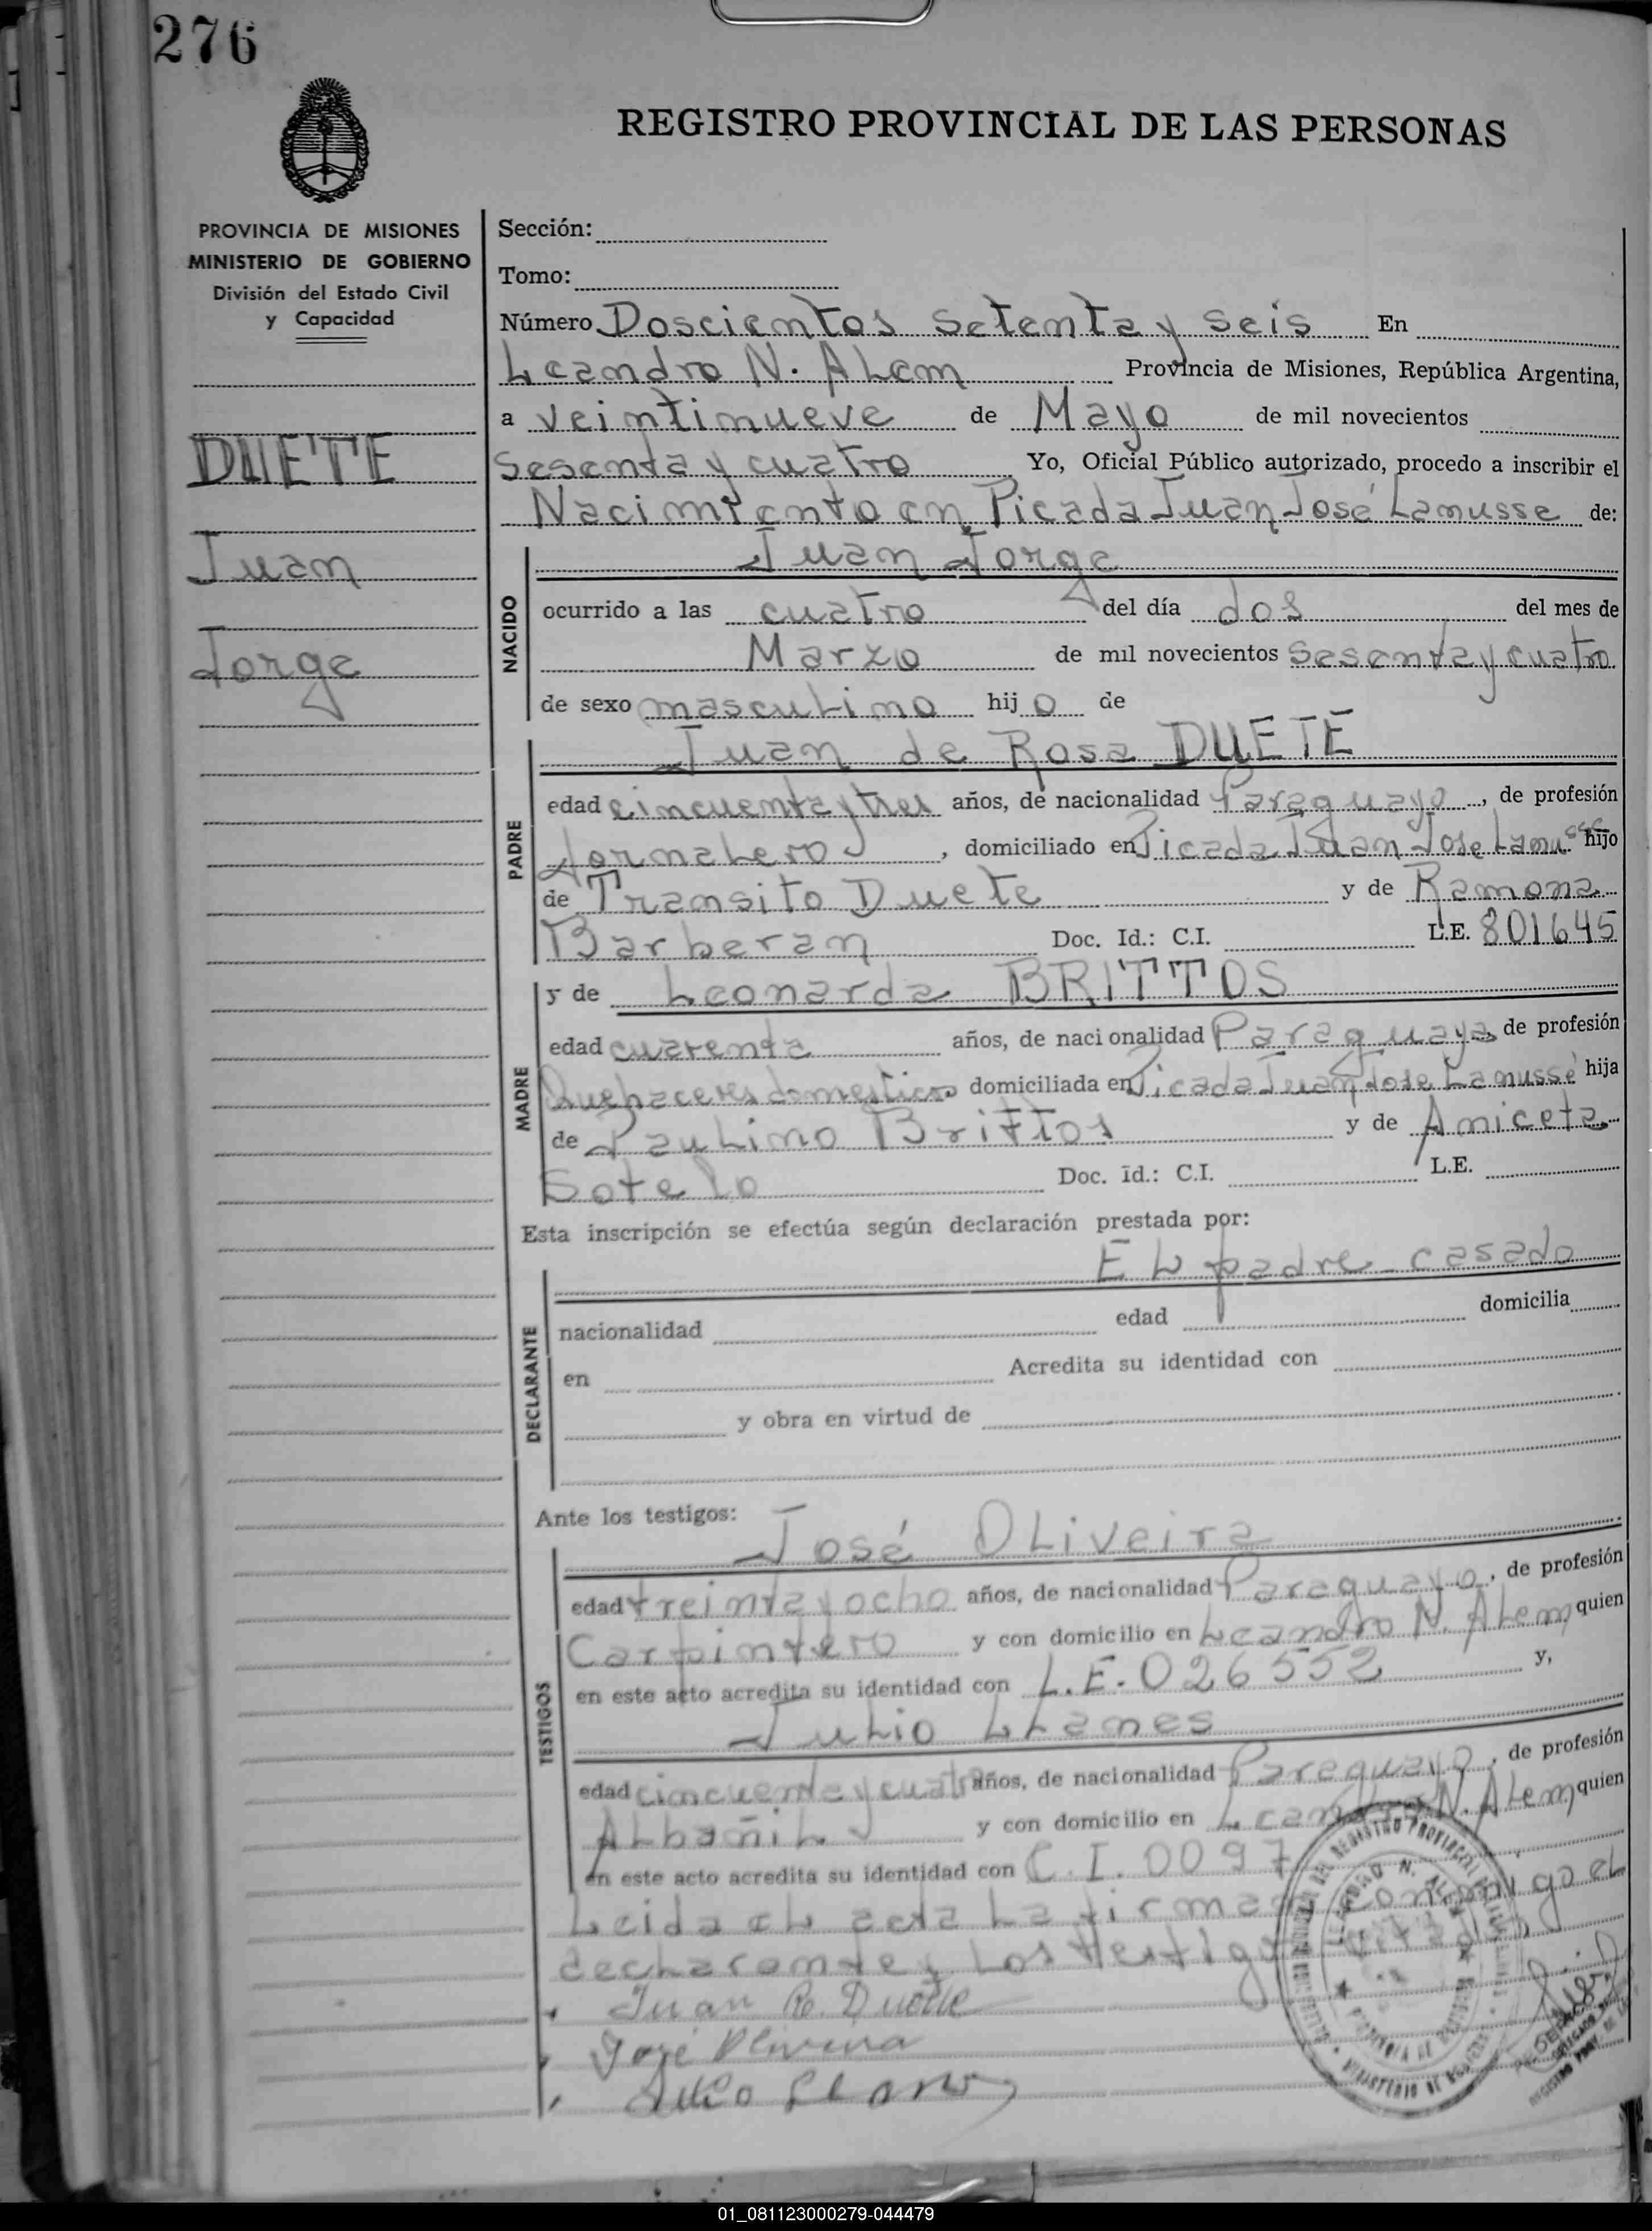 276
REGISTRO PROVINCIAL DE LAS PERSONAS
PROVINCIA DE MISIONES
MINISTERIO DE GOBIERNO
División del Estado Civil
y Capacidad
DUETE
Juan
Jorge
Sección:
Tomo:
Número Doscientos setenta y seis En
Leandro N. Alem Provincia de Misiones, República Argentina,
a veintinueve de Mayo de mil novecientos
sesenta y cuatro Yo, Oficial Público autorizado, procedo a inscribir el
Nacimiento en Picada Juan José Lanusse de:
NACIDO
Juan Jorge
ocurrido a las cuatro del día dos del mes de
Marzo de mil novecientos sesenta y cuatro
de sexo masculino hijo de
PADRE
Juan de Rosa DUETE
edad cincuenta y tres años, de nacionalidad Paraguayo, de profesión
Jornalero, domiciliado en Picada Juan Jose Lanusse hijo
de Transito Duete y de Ramona
Barberan Doc. Id.: C.I. L.E. 801645
MADRE
y de Leonarda BRITTOS
edad cuarenta años, de nacionalidad Paraguaya, de profesión
Quehaceres domesticos domiciliada en Picada Juan Jose Lanusse hija
de Paulino Brittos y de Aniceta
Sotelo Doc. Id.: C.I. L.E.
Esta inscripción se efectúa según declaración prestada por:
DECLARANTE
El padre - casado
nacionalidad edad domicilia
en Acredita su identidad con
y obra en virtud de
Ante los testigos:
TESTIGOS
José Oliveira
edad treinta y ocho años, de nacionalidad Paraguayo, de profesión
Carpintero y con domicilio en Leandro N. Alem quien
en este acto acredita su identidad con L.E. 026552 y,
Julio Llanes
edad cincuenta y cuatro años, de nacionalidad Paraguayo, de profesión
Albañil y con domicilio en Leandro N. Alem quien
en este acto acredita su identidad con C.I. 0097
Leida el acta la firman conmigo el
declarante y los testigos
Juan R. Duete
José Oliveira
Julio Llanes
01_081123000279-044479